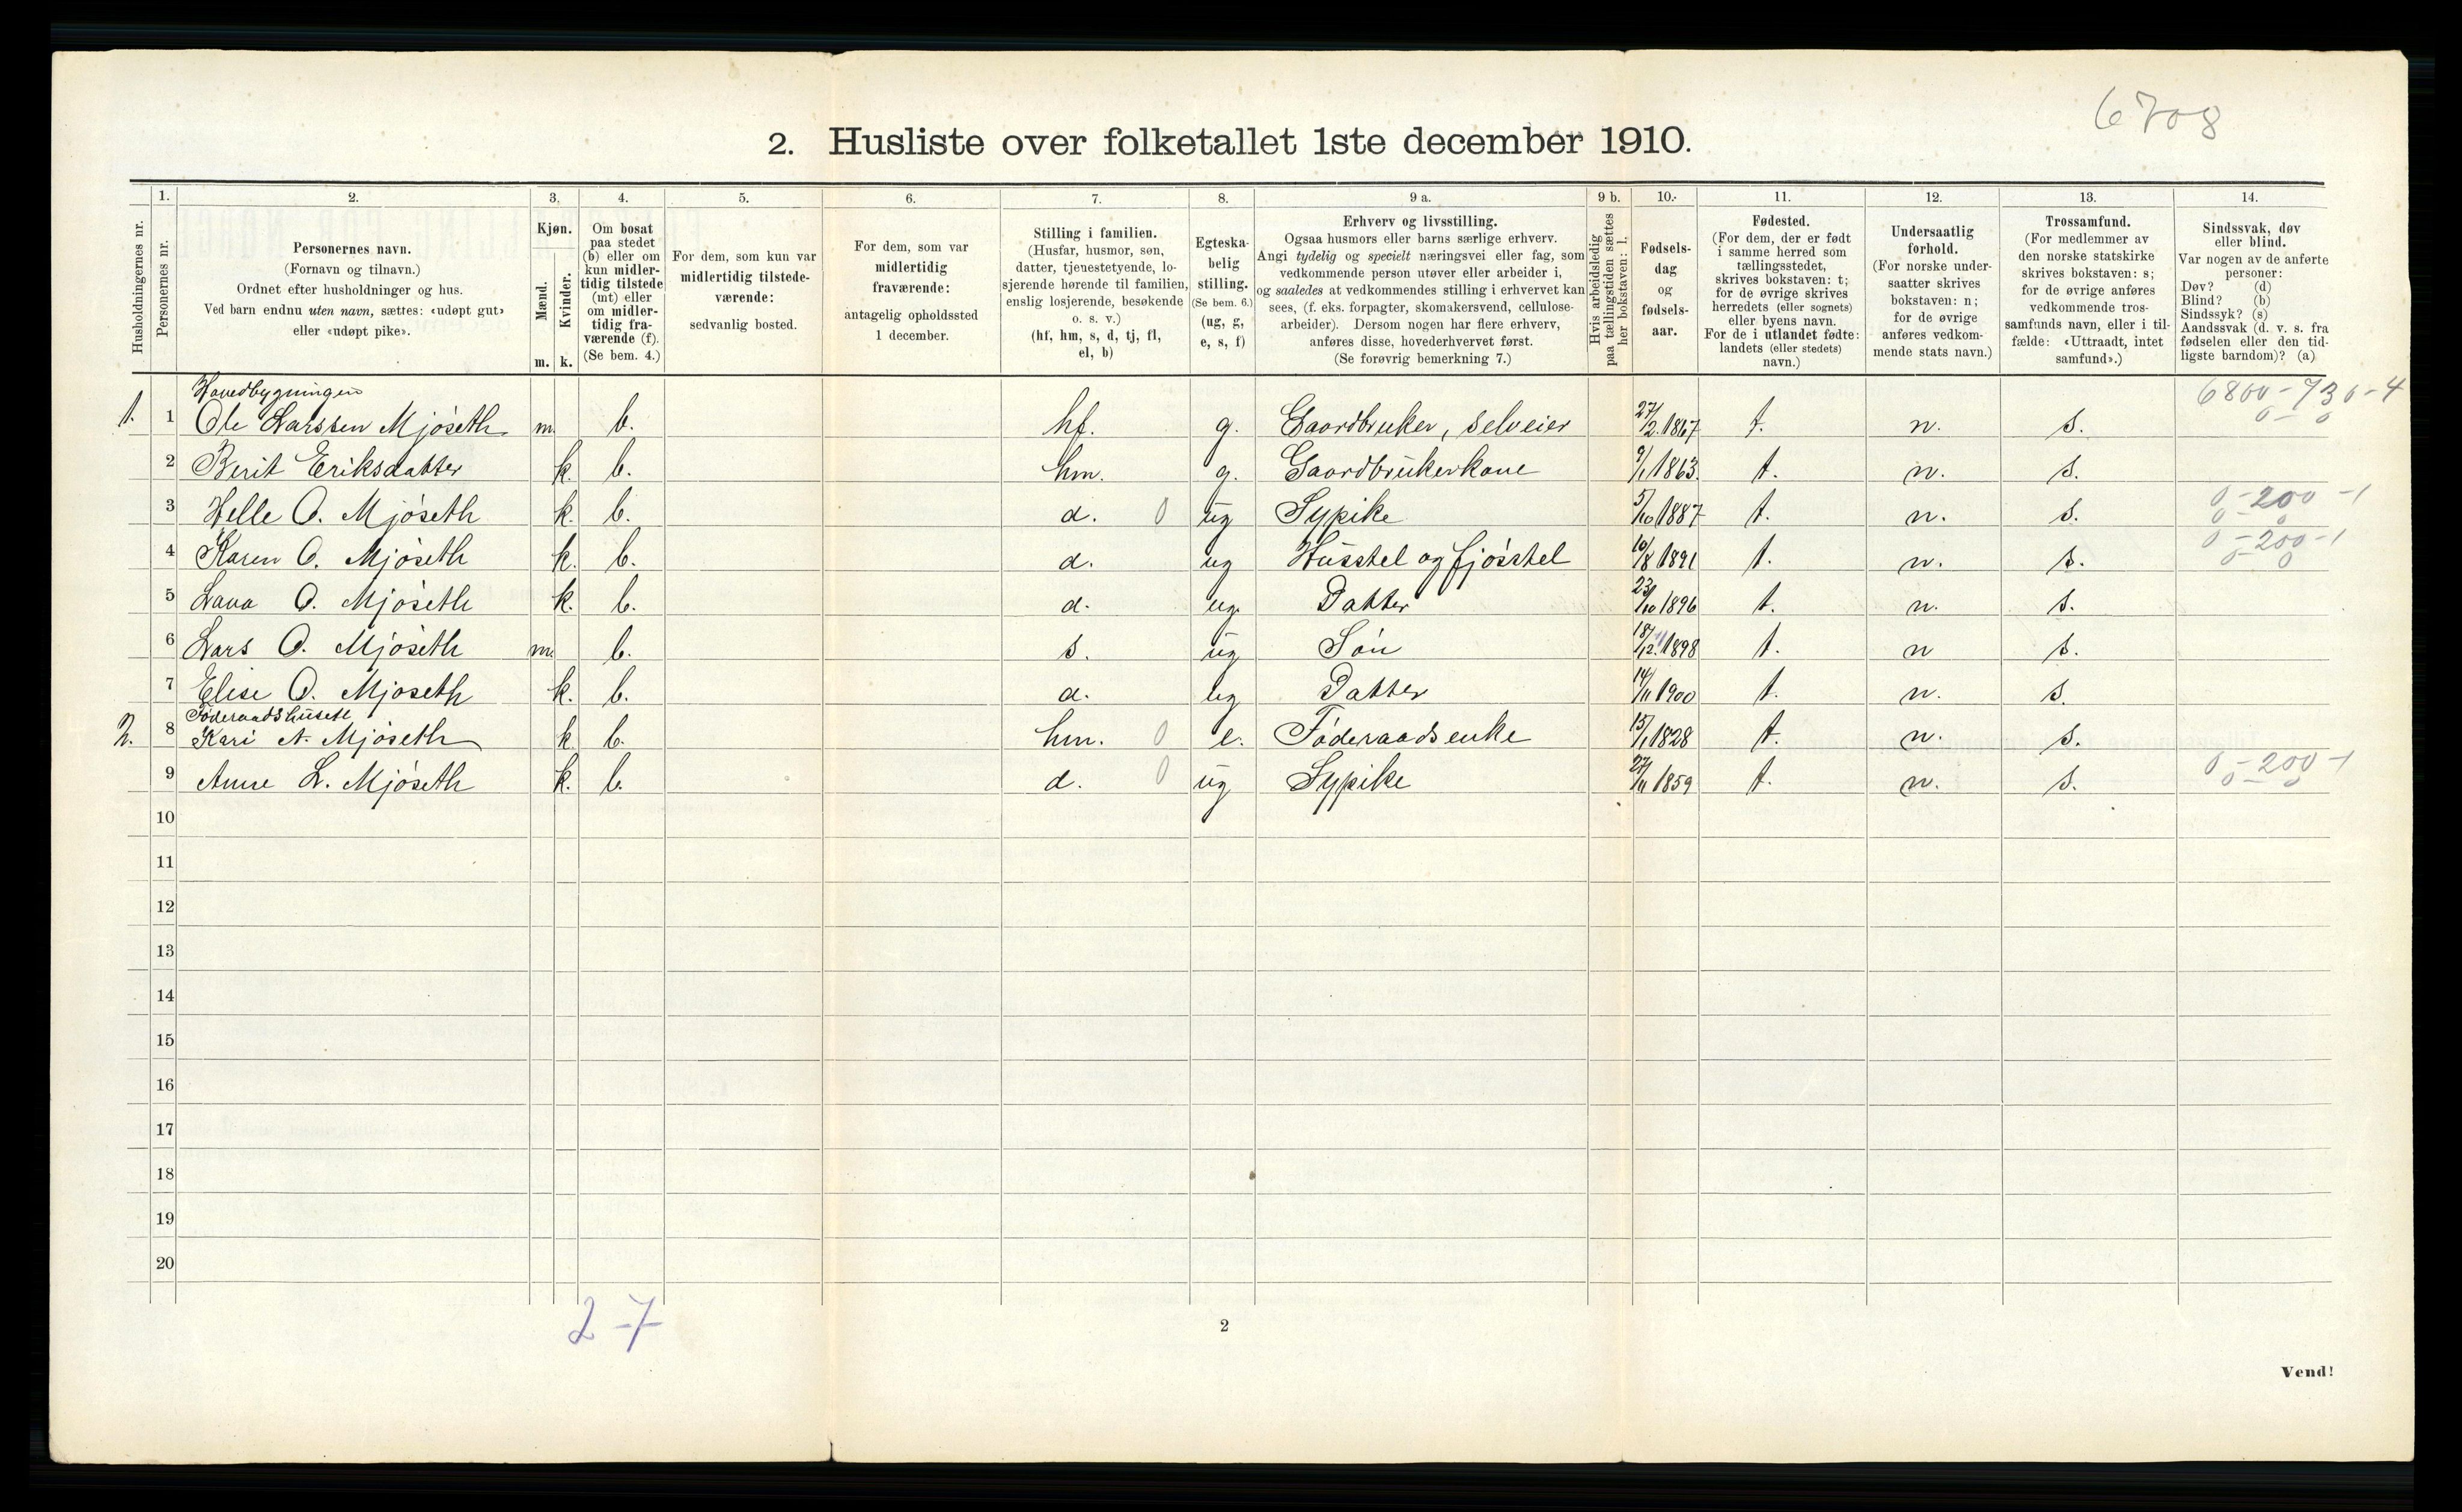 6708
2. Husliste over folketallet 1ste december 1910.
Husholdningernes nr.
1.
Personernes nr.
2.
Personernes navn.
(Fornavn og tilnavn.)
Ordnet efter husholdninger og hus.
Ved barn endnu uten navn, sættes: «udøpt gut»
eller «udøpt pike».
3.
Kjøn.
Mænd.
Kvinder.
m. k.
4.
Om bosat
paa stedet
(b) eller om
kun midler-
tidig tilstede
(mt) eller
om midler-
tidig fra-
værende (f).
(Se bem. 4.)
5.
For dem, som kun var
midlertidig tilstede-
værende:
sedvanlig bosted.
6.
For dem, som var
midlertidig
fraværende:
antagelig opholdssted
1 december.
7.
Stilling i familien.
(Husfar, husmor, søn,
datter, tjenestetyende, lo-
sjerende hørende til familien,
enslig losjerende, besøkende
o. s. v.)
(hf, hm, s, d, tj, fl,
el, b)
8.
Egteska-
belig
stilling.
(Se bem. 6.)
(ug, g,
e, s, f)
9 a.
Erhverv og livsstilling.
Ogsaa husmors eller barns særlige erhverv.
Angi tydelig og specielt næringsvei eller fag, som
vedkommende person utøver eller arbeider i,
og saaledes at vedkommendes stilling i erhvervet kan
sees, (f. eks. forpagter, skomakersvend, cellulose-
arbeider). Dersom nogen har flere erhverv,
anføres disse, hovederhvervet først.
(Se forøvrig bemerkning 7.)
9 b.
Hvis arbeidsledig
paa tællingstiden sættes
her bokstaven: l.
10.
Fødsels-
dag
og
fødsels-
aar.
11.
Fødested.
(For dem, der er født
i samme herred som
tællingsstedet,
skrives bokstaven: t;
for de øvrige skrives
herredets (eller sognets)
eller byens navn.
For de i utlandet fødte:
landets (eller stedets)
navn.)
12.
Undersaatlig
forhold.
(For norske under-
saatter skrives
bokstaven: n;
for de øvrige
anføres vedkom-
mende stats navn.)
13.
Trossamfund.
(For medlemmer av
den norske statskirke
skrives bokstaven: s;
for de øvrige anføres
vedkommende tros-
samfunds navn, eller i til-
fælde: «Uttraadt, intet
samfund».)
14.
Sindssvak, døv
eller blind.
Var nogen av de anførte
personer:
Døv? (d)
Blind? (b)
Sindssyk? (s)
Aandssvak (d. v. s. fra
fødselen eller den tid-
ligste barndom)? (a)
Hovedbygningen 6800-730-4
1. 1 Ole Larssen Mjøseth m. b. hf. g. Gaardbruker, selveier 27/2 1867 t. n. s. 0-0
2 Berit Eriksdatter k. b. hm. g. Gaardbrukerkone 9/1 1863. t. n. s.
3 Helle O. Mjøseth k. b. d. 0 ug Sypike 5/10 1887 t. n. s. 0-200-1 0-0
4 Karen O. Mjøseth k. b. d. ug Husstel og fjøsstel 10/8 1891 t. n. s. 0-200-1 0-0
5 Lava O. Mjøseth k. b. d. ug. Datter 23/10 1896 t. n. s.
6 Lars O. Mjøseth m. b. s. ug Søn 18/12 1898 t. n s.
7 Elise O. Mjøseth k. b. d. ug Datter 14/11 1900 t. n. s.
Föderaadshuset
2. 8 Kari A. Mjøseth k. b. hm. 0 e. Føderaadsenke 15/1 1828 t. n. s.
9 Anne L. Mjøseth k. b. d. 0 ug Sypike 27/11 1859 t. n. s. 0-200-1 0-0
10
11
12
13
14
15
16
17
18
19
20
2-7
2
Vend!